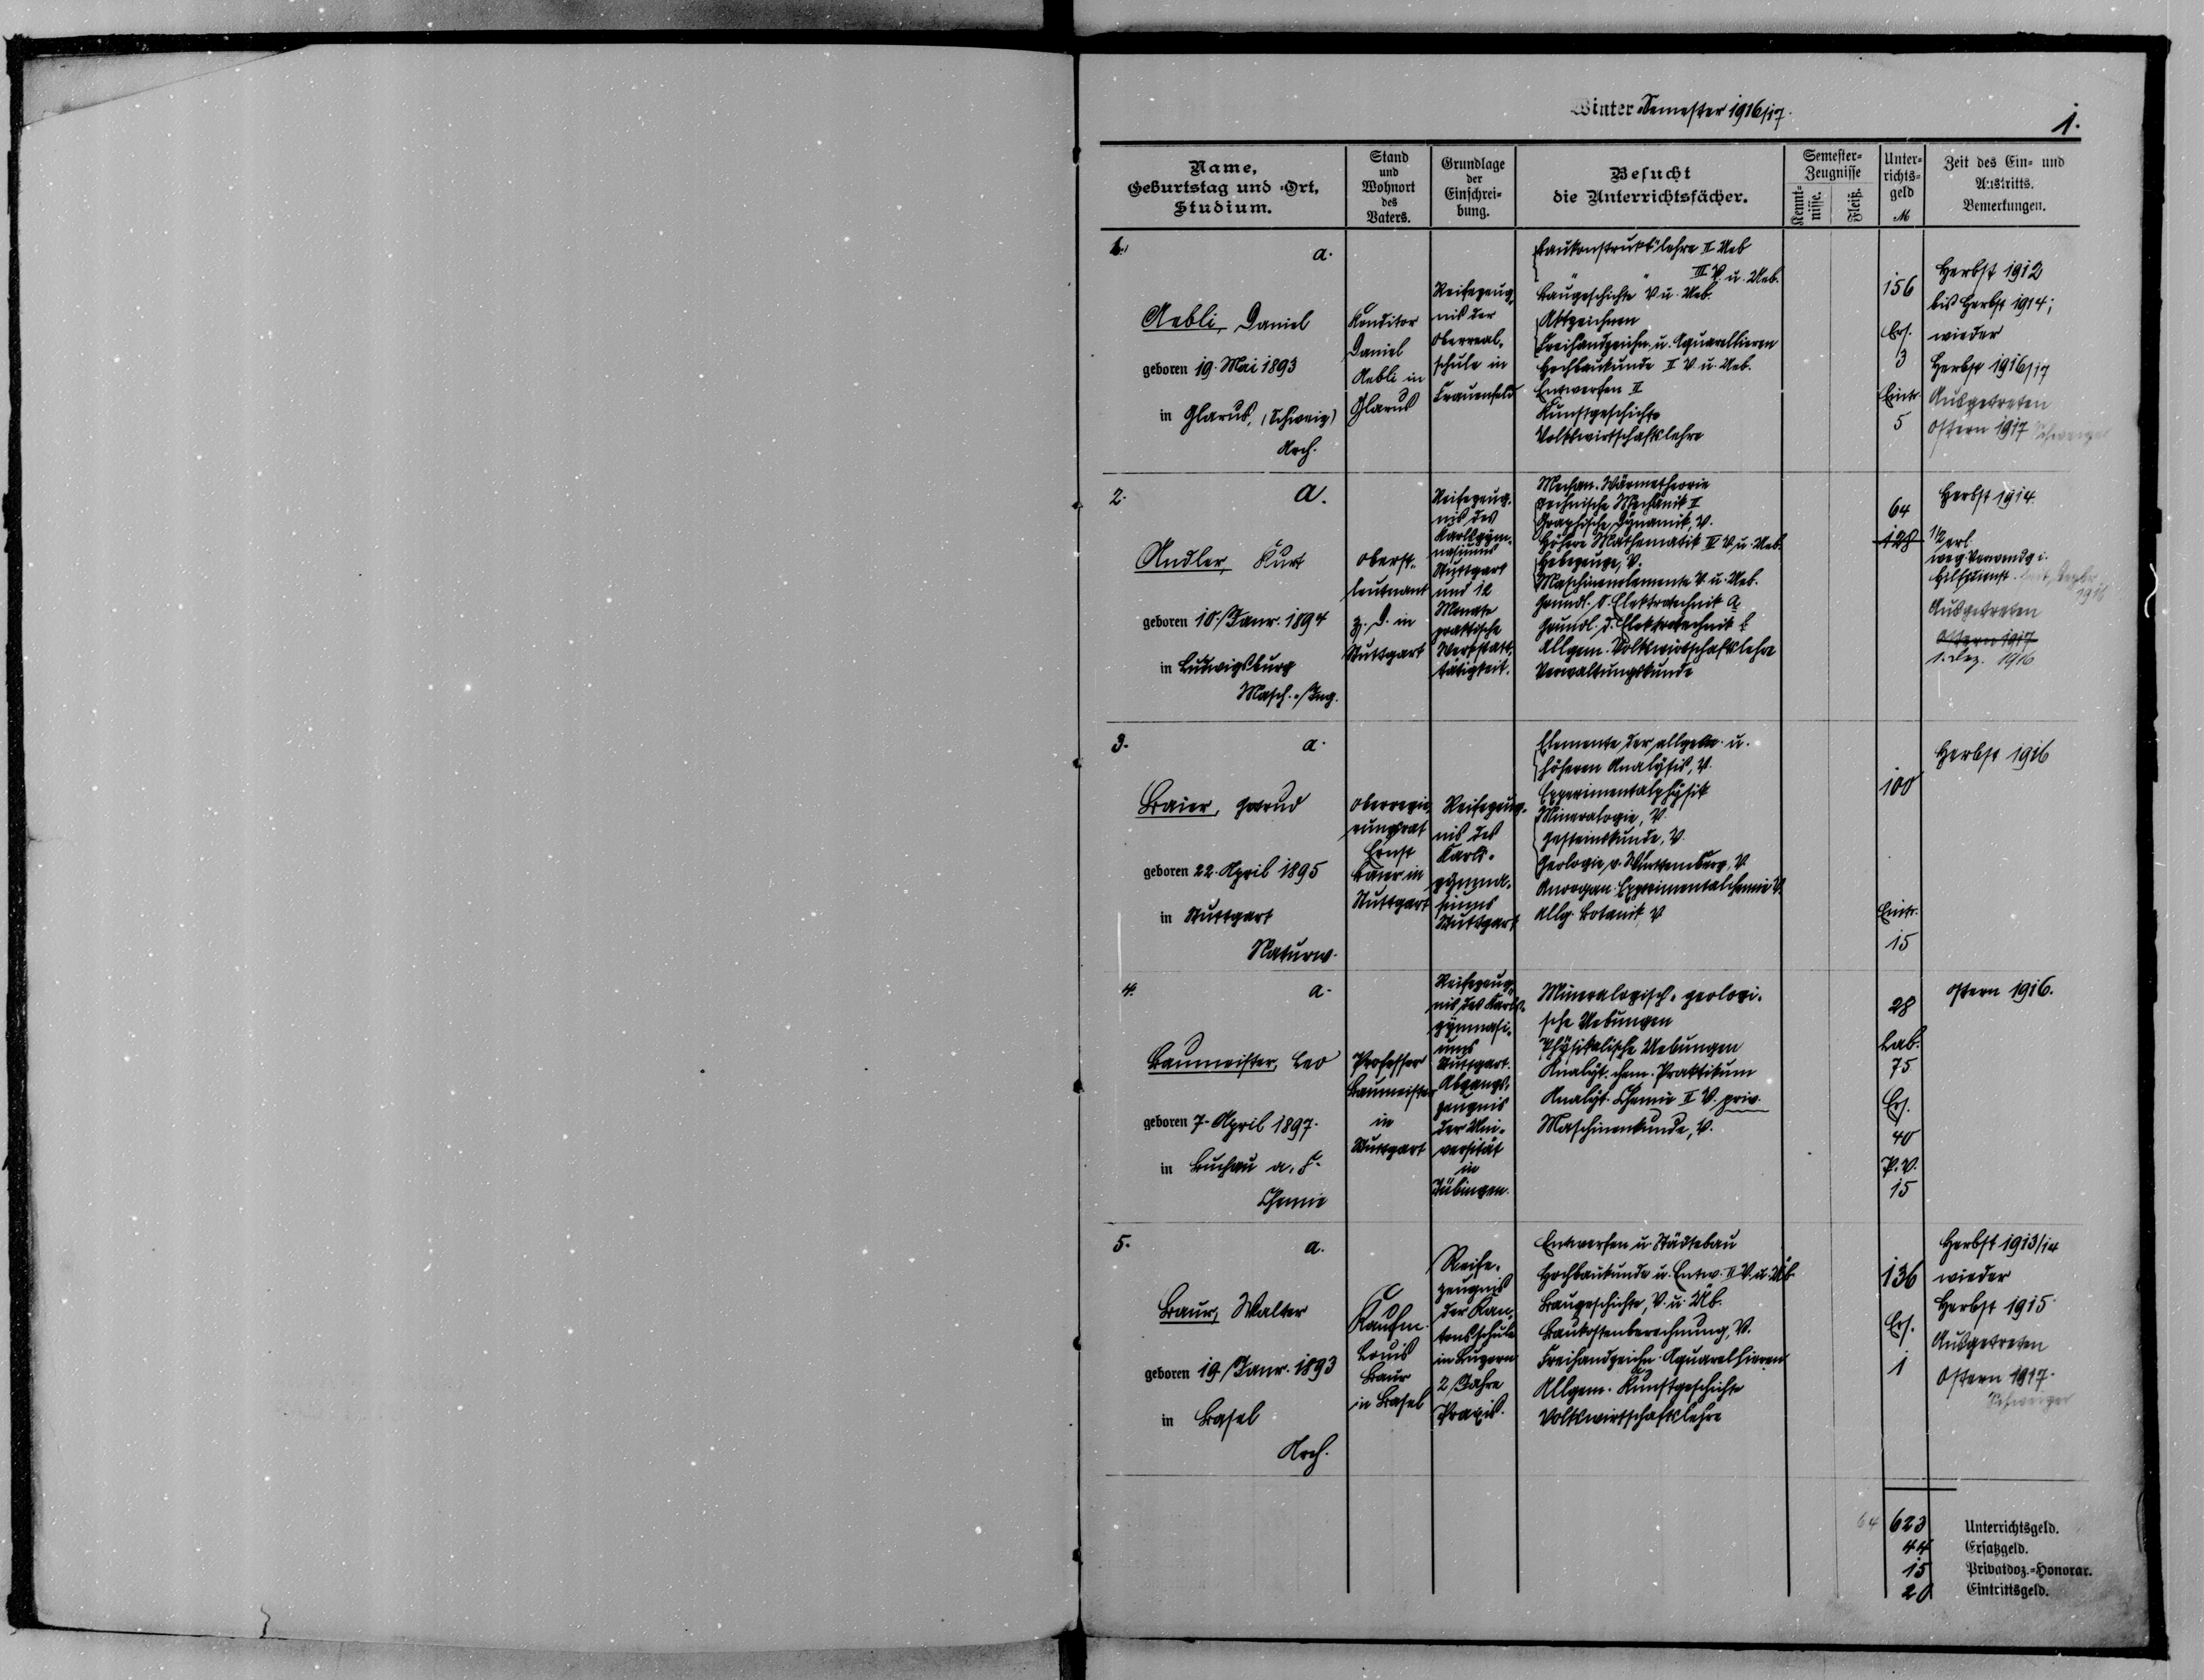 Winter Semester 1916/17.
1.
Name,
Geburtstag und Ort,
Studium.
Stand
und
Wohnort
des
Vaters.
Grundlage
der
Einschrei-
bung.
Besucht
die Unterrichtsfächer.
Semester-
Zeugnisse
Kennt-
nisse.
Fleiß.
Unter-
richts-
geld
M
Zeit des Ein- und
Austritts.
Bemerkungen.
1.
a.
Aebli, Daniel
geboren 19. Mai 1893
in Glarus, (Schweiz)
Arch.
Konditor
Daniel
Aebli in
Glarus
Reifezeug-
nis der
Oberreal-
schule in
Frauenfeld
Baukonstrukt'lehre II Ueb
" " III V. u. Ueb.
Baugeschichte V u. Ueb.
Aktzeichnen
Freihandzeichn. u. Aquarellieren
Hochbaukunde II V u. Ueb.
Entwerfen II
Kunstgeschichte
Volkswirtschaftslehre
156
Ers.
3
Eintr.
5
Herbst 1912
bis Herbst 1914;
wieder
Herbst 1916/17
Ausgetreten
Ostern 1917 Schweizer
2.
a.
Andler, Kurt
geboren 10. Janr. 1894
in Ludwigsburg
Masch.-Ing.
Oberst-
leutnant
z. D. in
Stuttgart
Reifezeug-
nis des
Karlsgym-
nasiums
Stuttgart
und 12
Monate
praktische
Werkstatt-
tätigkeit.
Mechan. Wärmetheorie
Technische Mechanik II
Graphische Dynamik, V.
Höhere Mathematik III V u. Ueb.
Hebezeuge, V.
Maschinenelemente V. u. Ueb.
Grundl. d. Elektrotechnik a
Grundl. d. Elektrotechnik b
Allgem. Volkswirtschaftslehre
Verwaltungskunde
64
128
Herbst 1914.
1/2 erl.
weg. Verwendg i.
Hilfsdienst
1916
Ausgetreten
Ostern 1917
1. Dez. 1916
3.
a.
Baier, Gerud
geboren 22. April 1895
in Stuttgart
Naturw.
Oberregie-
rungsrat
Ernst
Baier in
Stuttgart
Reifezeug-
nis des
Karls-
gymna-
siums
Stuttgart
Elemente der allgem. u.
höheren Analysis, V.
Experimentalphysik
Mineralogie, V.
Gesteinskunde, V.
Geologie v. Württemberg, V.
Anorgan. Experimentalchemie V.
Allg. Botanik V
100
Eintr.
15
Herbst 1916
4.
a.
Baumeister, Leo
geboren 7. April 1897.
in Buchau a. F.
Chemie
Professor
Baumeister
in
Stuttgart
Reifezeug-
nis des Karls-
gymnasi-
ums
Stuttgart.
Abgangs-
zeugnis
der Uni-
versität
in
Tübingen.
Mineralogisch-geologi-
sche Uebungen
Physikalische Uebungen
Analyt. chem. Praktikum
Analyt. Chemie II V. priv.
Maschinenkunde, V.
28
Lab.
75
Ers.
40
P. V.
15
Ostern 1916.
5.
a.
Baur, Walter
geboren 19. Janr. 1893
in Basel
Arch.
Kaufm.
Louis
Baur
in Basel
Reife-
zeugnis
der Kan-
tonsschule
in Luzern
2 Jahre
Praxis.
Entwerfen u. Städtebau
Hochbaukunde u. Entw. II V. u. Üb.
Baugeschichte, V. u. Üb.
Baukostenberechnung, V.
Freihandzeichn. Aquarellieren
Allgem. Kunstgeschichte
Volkswirtschaftslehre
136
Ers.
1
Herbst 1913/14
wieder
Herbst 1915
Ausgetreten
Ostern 1917.
Schweizer
64 623 Unterrichtsgeld.
44 Ersatzgeld.
15 Privatdoz.-Honorar.
20 Eintrittsgeld.